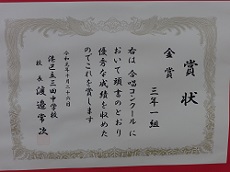 賞状
金賞
三年一組
右は 合唱コンクールに
おいて頭書のとおり
優秀な成績を収めた
のでこれを賞します
令和元年十月二十六日
港区立三田中学校
校長 渡邉常次